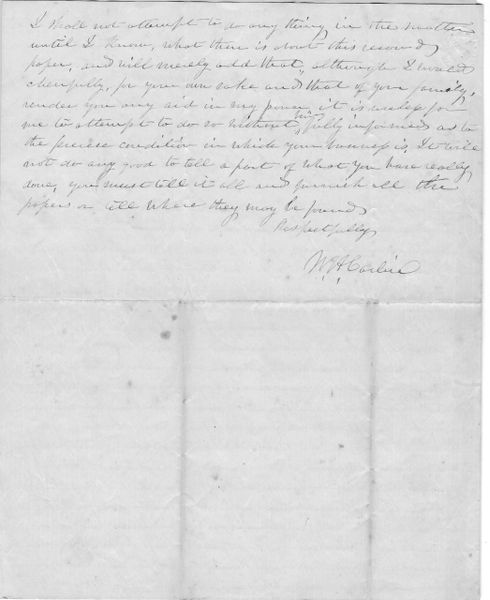 I shall not attempt to do any thing in the matter
until I know, what there is about this second
paper, and will merely add that, although I would
cheerfully, for your own sake and that of your family,
render you any aid in my power, it is useless for
me to attempt to do so without being fully informed as to
the precise condition in which your business is. It will
not do any good to tell a part of what you have really
done, you must tell it all and furnish all the
papers or tell where they may be found.
Respectfully
W. H. Carlin